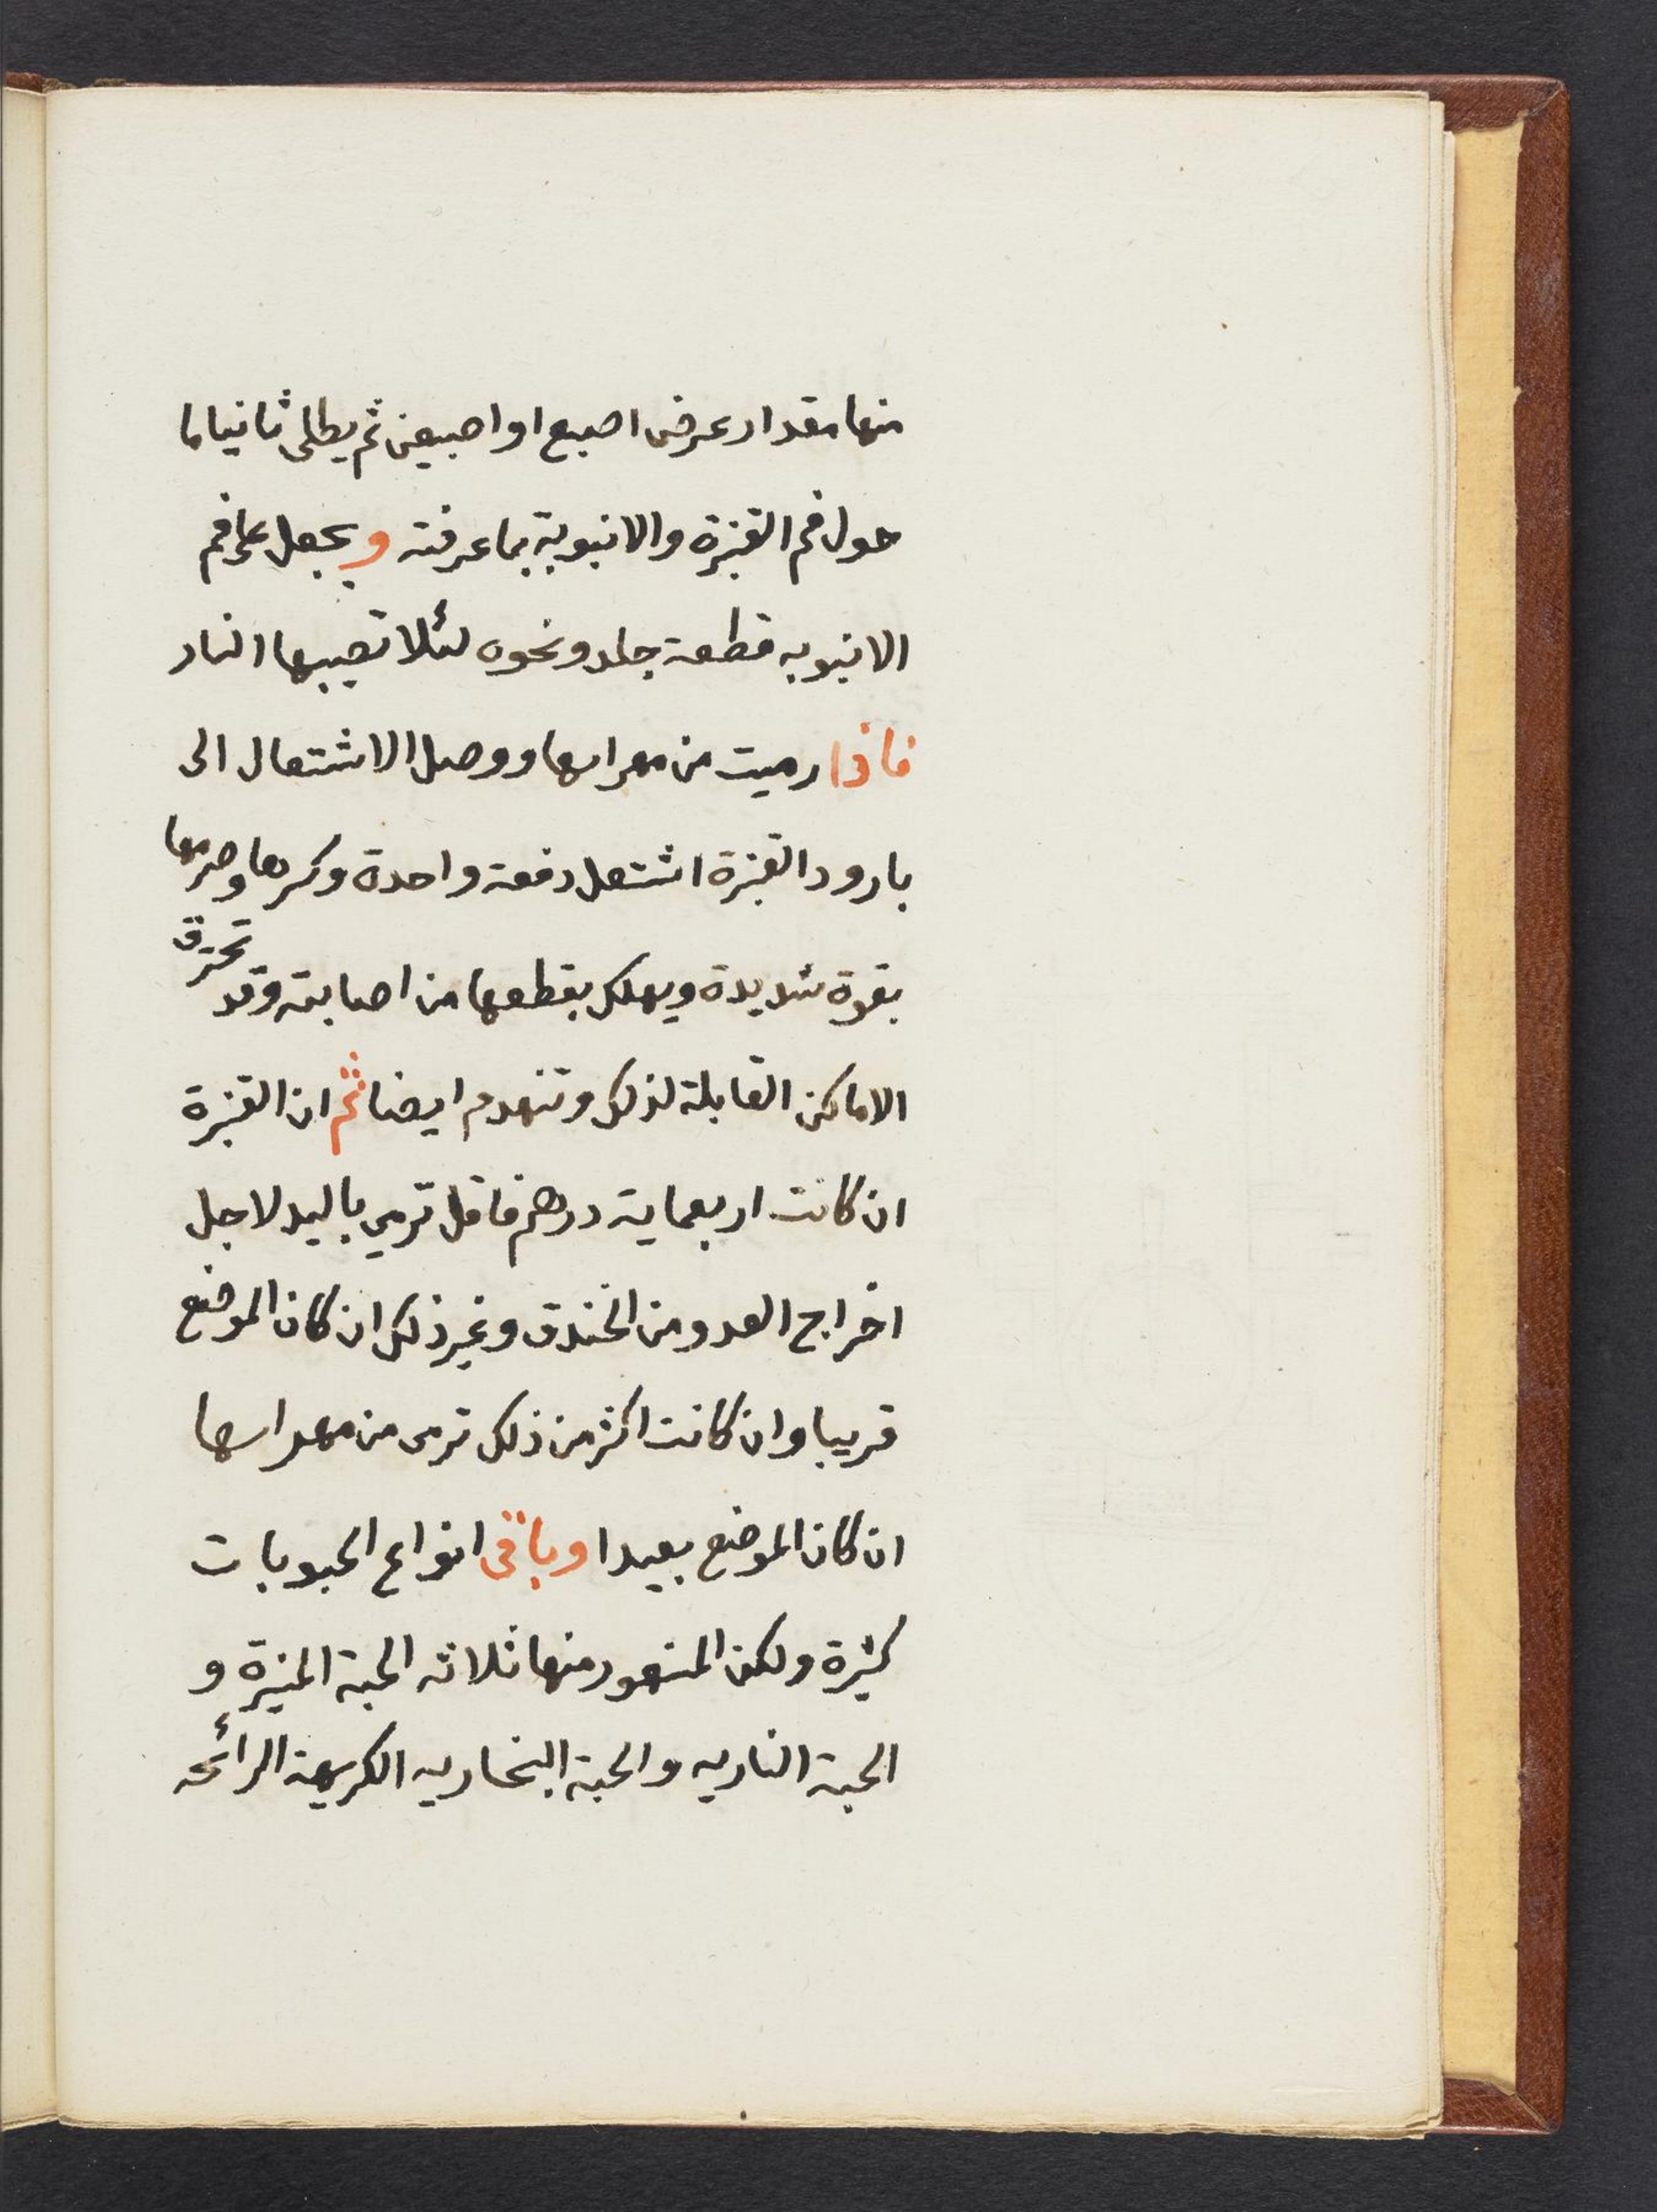 منها مقدار عرض اصبع او اصبعين ثم يطلى ثانيا ما
حول فم القنبرة والانبوبة بما عرفته ويجعل على فم
الانبوبه قطعة جلد ونحوه لئلا تصيبها النار
فاذا رميت من مهراسها ووصل الاشتعال الى
بارود القنبرة اشتعل دفعة واحدة وكسرها وصرمها
بقوة شديدة ويهلك بقطعها من اصابته وقد تحترق
الاماكن القابلة لذلك وتنهدم ايضا ثم ان القنبرة
ان كانت اربعماية درهم فاقل ترمي باليد لاجل
اخراج العدو من الخندق وغير ذلك ان كان الموضع
قريبا وان كانت اكثر من ذلك ترمى من مهراسها
ان كان الموضع بعيدا وباقى انواع الحبوبات
كثيرة ولكن المشهور منها ثلاثه الحبة المنيرة و
الحبة الناريه والحبة البخاريه الكريهة الرائحه